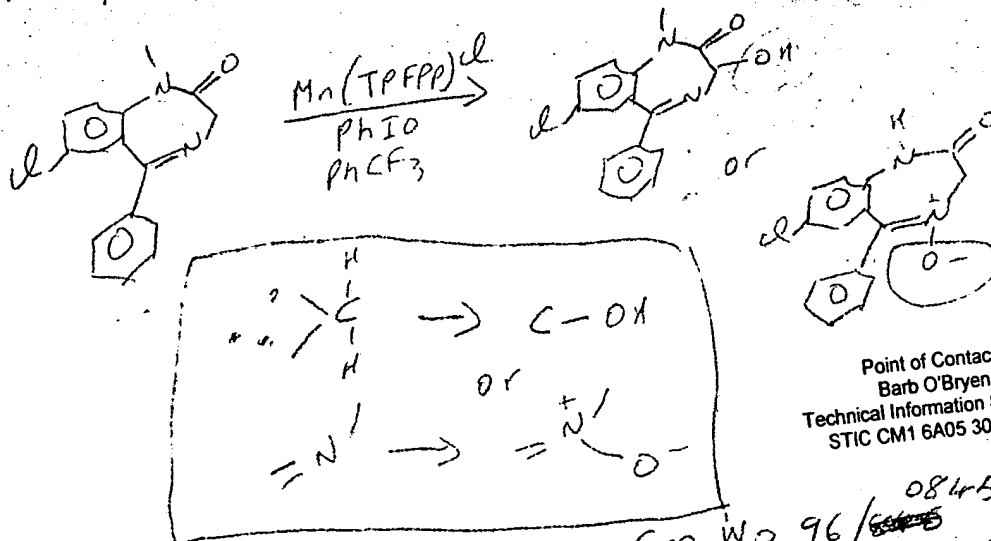 Mn(TPFPP)Cl
PhIO
PhCF3
N
O
N
Cl
N
O
OH
N
Cl
or
H
N
O
N
+
O-
Cl
H
C
H
→ C-OH
or
=N → =N
+
O-
Point of Contac
Barb O'Bryen
Technical Information
STIC CM1 6A05 30
WO 96/